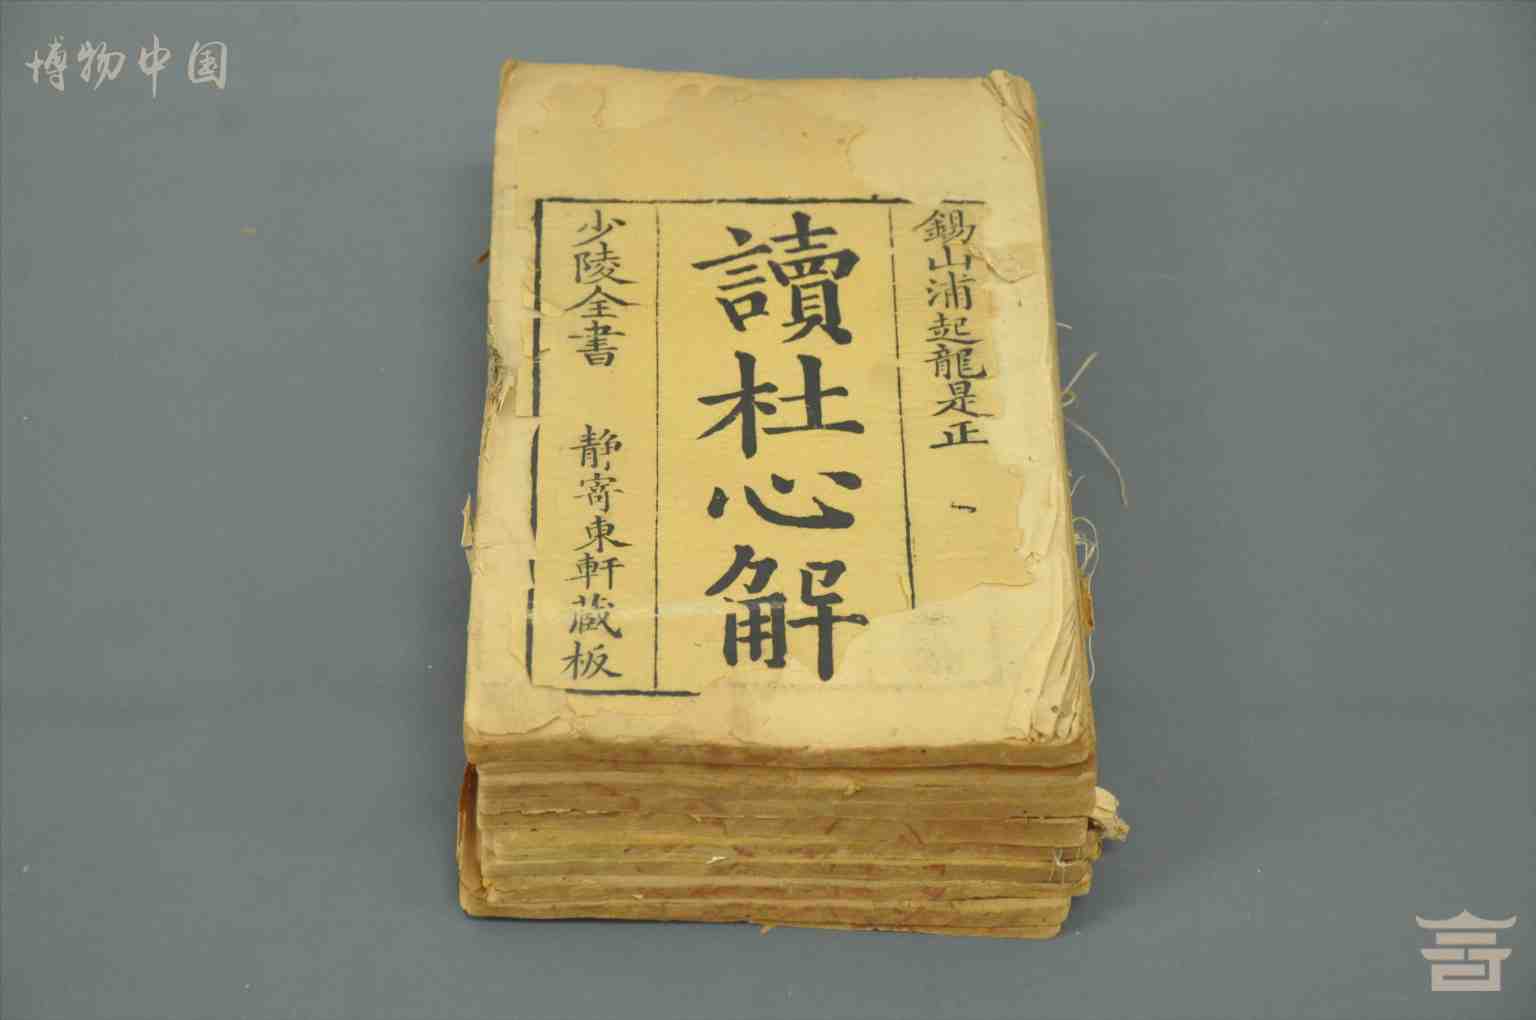 博物中国
錫山浦起龍是正
讀杜心解
少陵全書 靜寄東軒藏板